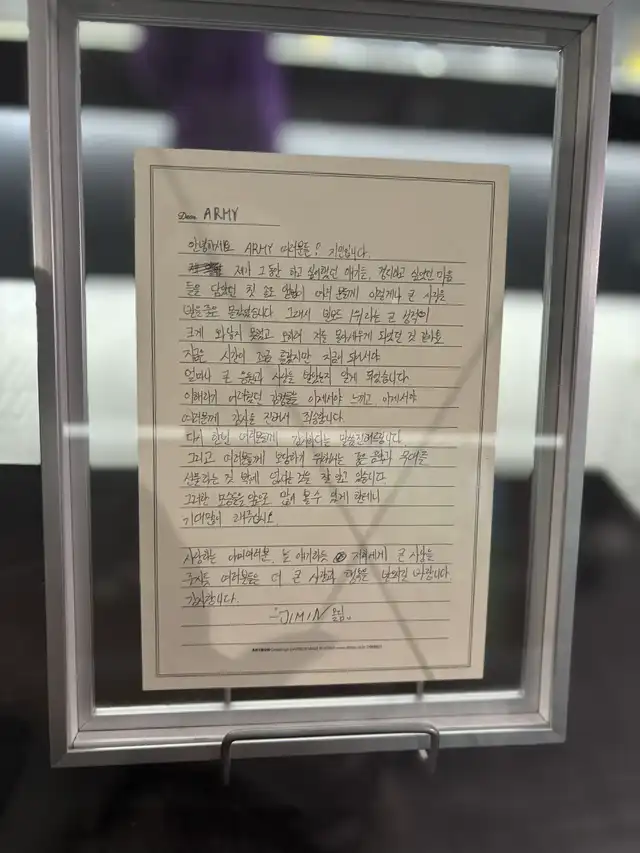 Dear. ARMY
안녕하세요 ARMY 여러분들! 지민입니다.
제가 그동안 하고 싶었던 얘기들, 정리하고 싶었던 마음
들을 담았던 첫 솔로 앨범이 여러분들께 이렇게나 큰 사랑을
받을줄은 몰랐었습니다 그래서 빌보드 1위라는 큰 성적이
크게 와닿지 못했고 오히려 저를 되었던 것 같아요
지금은 시간이 조금 흘렀지만 지금에 와서야
얼마나 큰 응원과 사랑을 받았는지 알게 되었습니다
이해하기 어려웠던 감정들을 이제서야 느끼고 이제서야
여러분께 감사를 전해서 죄송합니다
다시 한번 여러분들께 감사하다는 말씀전해드립니다.
그리고 여러분들께 보답하기 위해서는 좋은 음악과 무대를
선물하는 것 밖에 없다는 것을 잘 알고 있습니다
그러한 모습들을 앞으로 볼 수 있게 할테니
기대많이 해주십시오
사랑하는 아미여러분, 늘 얘기하듯 저희에게 큰 사랑을
주시는 여러분들은 더 큰 사랑과 행복을 바랍니다
감사합니다.
-JIMIN 올림.